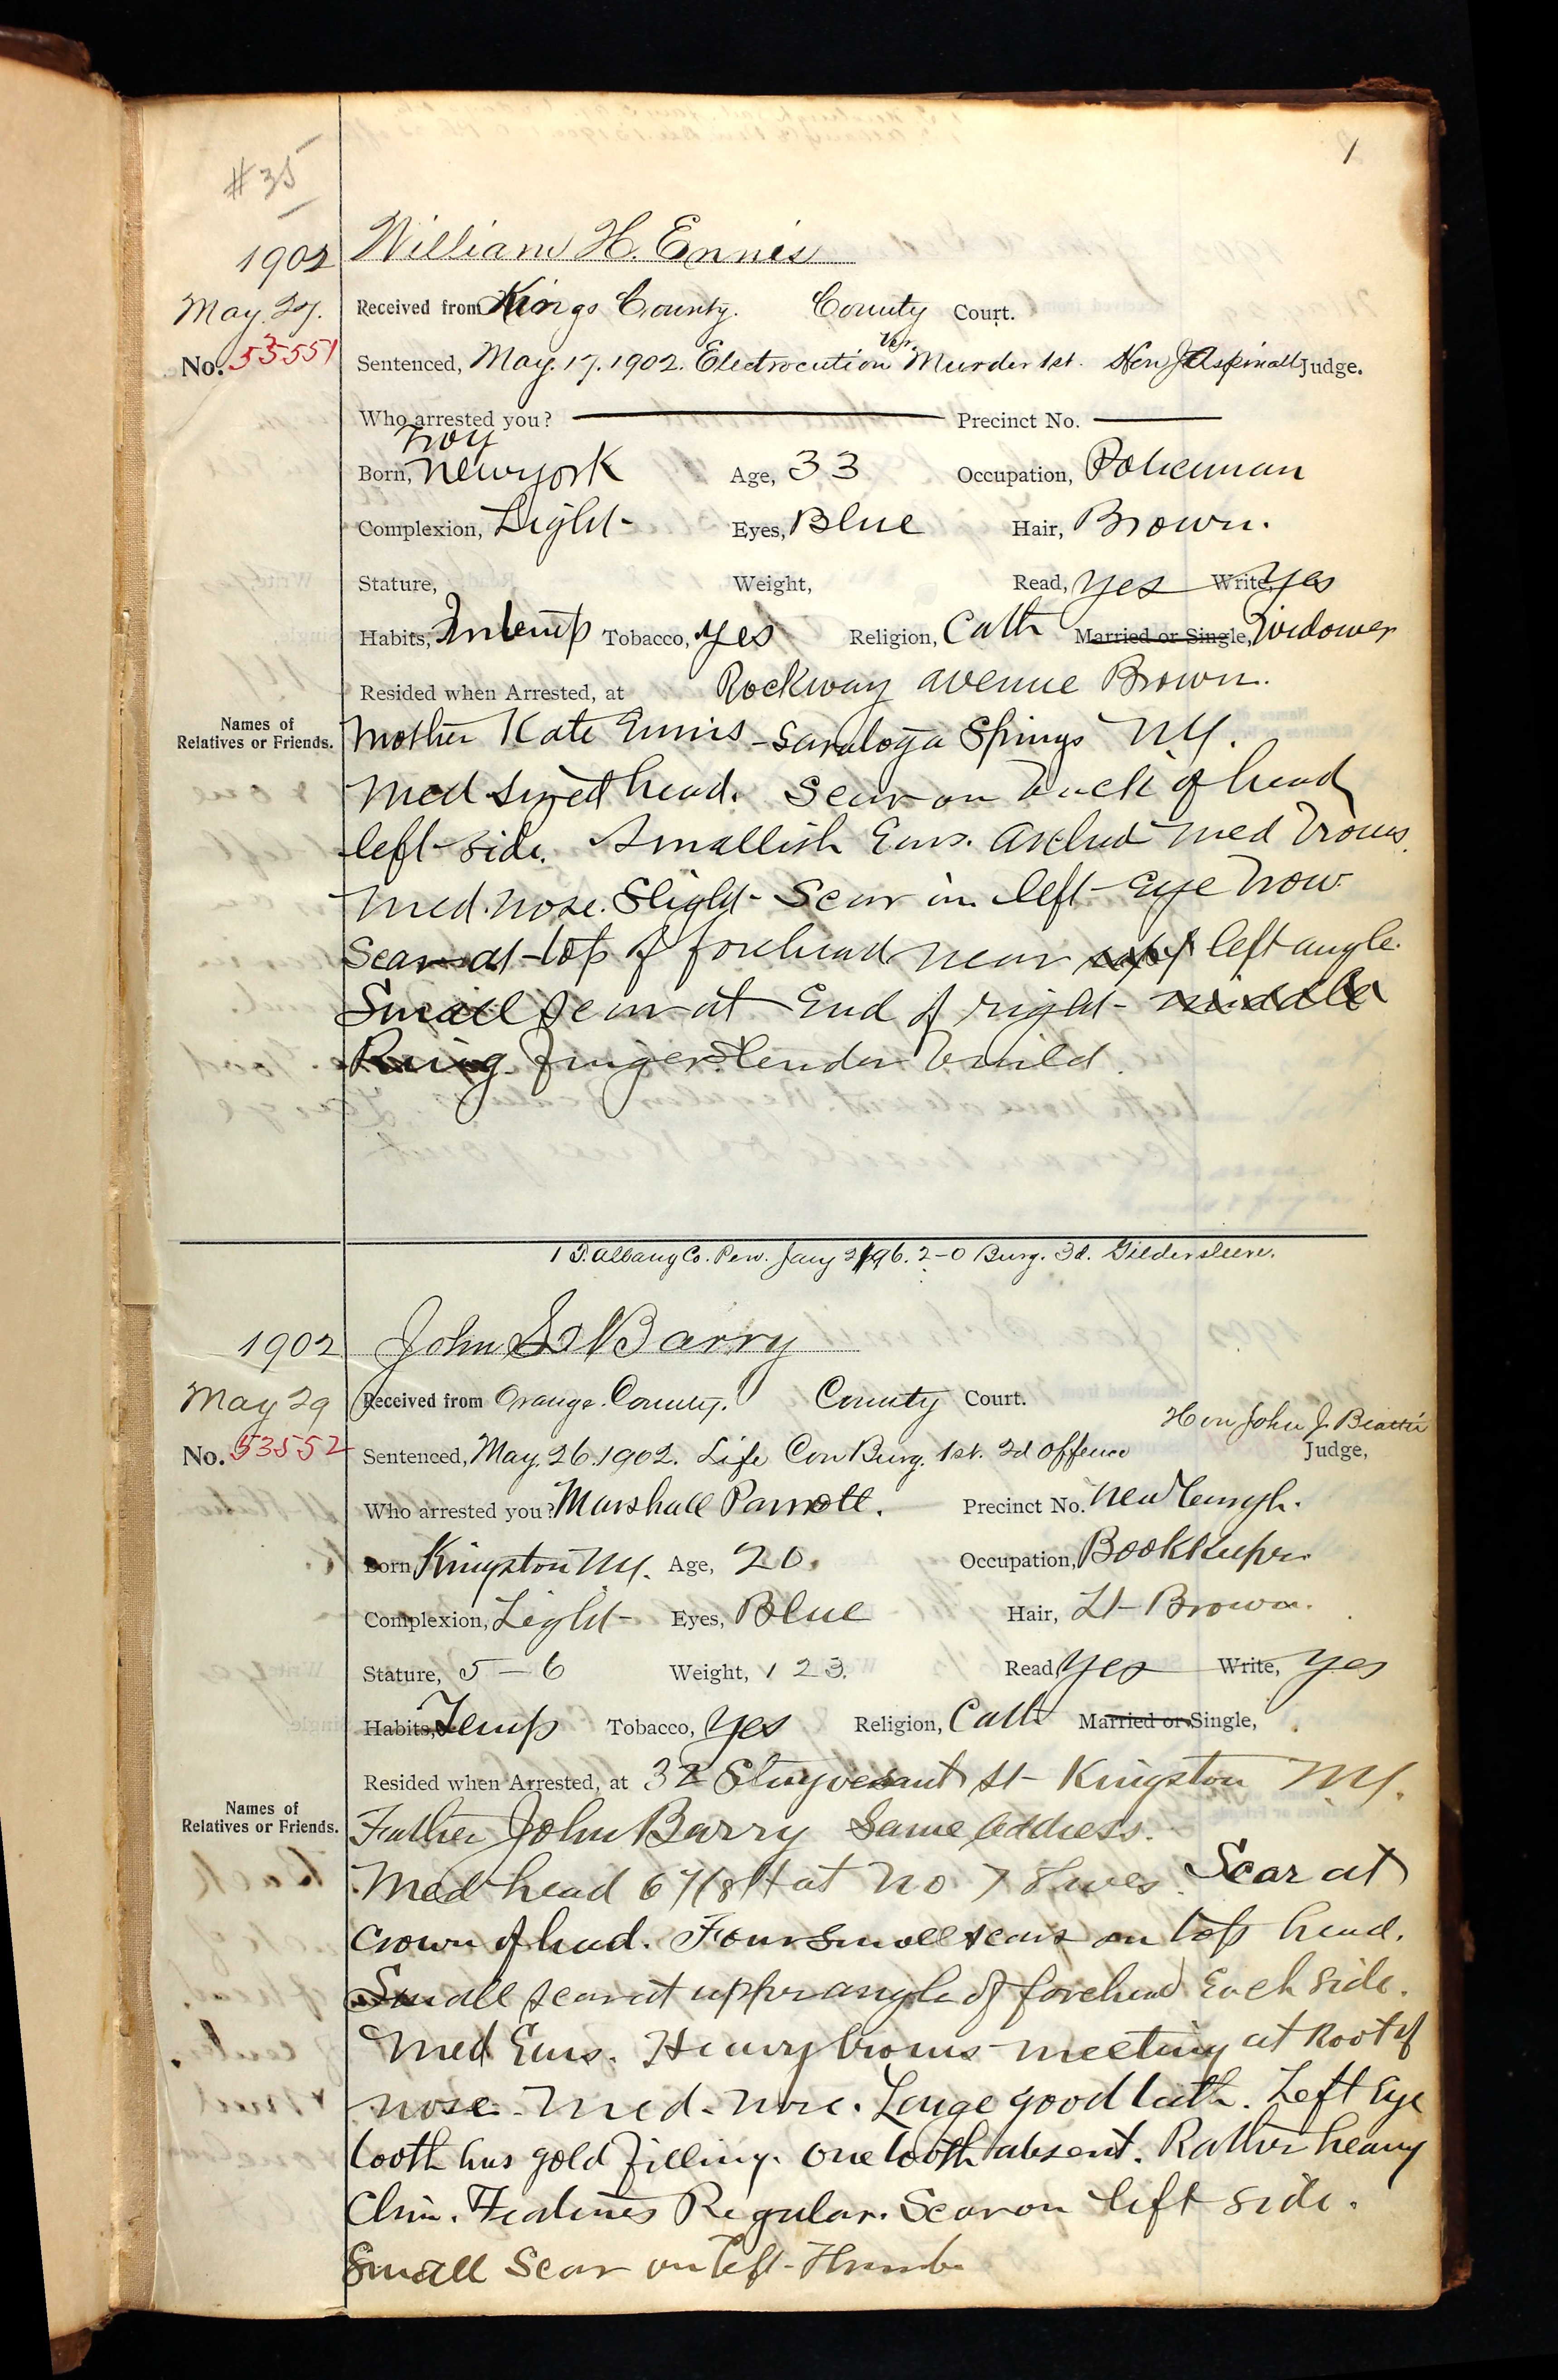 1
#35
1902 William H. Ennis
May. 27. Received from Kings County. County Court.
No. 53551 Sentenced, May. 17. 1902. Electrocution Murder 1st. Hon J Aspinall Judge.
Who arrested you? Precinct No.
Troy
Born, New York Age, 33 Occupation, Policeman
Complexion, Light Eyes, Blue Hair, Brown.
Stature, Weight, Read, yes Write, yes
Habits, Intemp Tobacco, yes Religion, Cath Married or Single, Widower
Resided when Arrested, at Rockway avenue Brown.
Names of
Relatives or Friends. Mother Kate Ennis - Saratoga Springs NY.
Med sized head. Scar on back of head
left side. Smallish Ears. Arched med brows.
Med. nose. Slight Scar in left Eye brow
Scar at top of forehead near left angle.
Small scar at End of right middle
Ring finger Slender build.
1 D. Albany Co. Pen. Jany 2/96. 2-0 Burg. 3d. Gildersleeve.
1902 John Barry
May 29 Received from Orange County. County Court.
Hon John J. Beattie
No. 53552 Sentenced, May. 26. 1902. Life Con Burg. 1st. 2d offence Judge,
Who arrested you? Marshall Parrott. Precinct No. Newburgh.
Born, Kingston NY. Age, 20. Occupation, Bookkeeper.
Complexion, Light Eyes, Blue Hair, Lt Brown.
Stature, 5-6 Weight, 123. Read, yes Write, yes
Habits, Temp Tobacco, yes Religion, Cath Married or Single,
Resided when Arrested, at 32 Stuyvesant St Kingston NY.
Names of
Relatives or Friends. Father John Barry Same Address.
Med head 6 7/8 Hat No 7 Shoes. Scar at
crown of head. Four small scars on top head.
Small scar at upper angle of forehead Each side.
Med Ears. Heavy brows meeting at Root of
nose. Med. nose. Large good teeth. Left Eye
tooth has gold filling. One tooth absent. Rather heavy
Chin. Features Regular. Scar on left side.
Small Scar on left Thumb